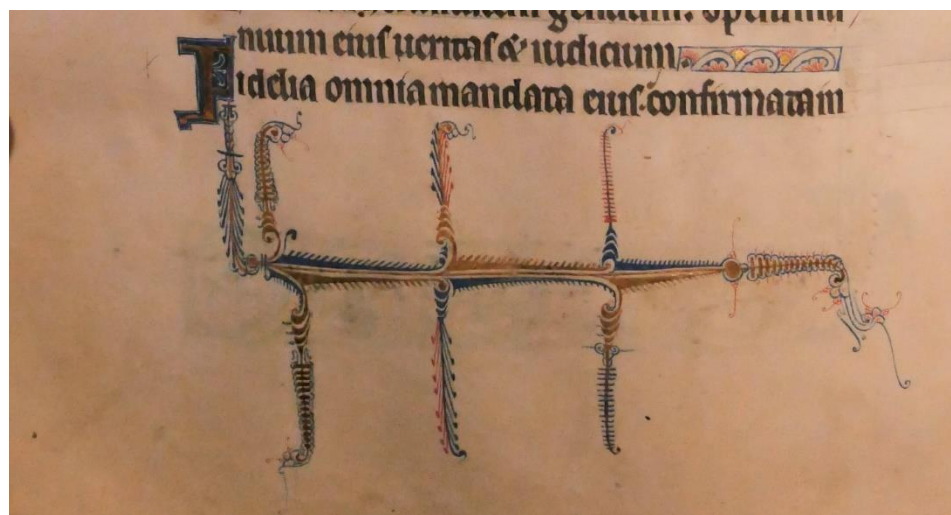 gentium. opera ma
nuum eius ueritas & iudicium.
Fidelia omnia mandata eius. confirmata in